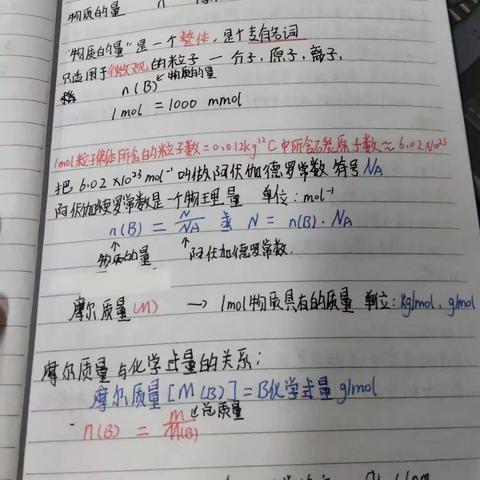 物质的量 n
"物质的量"是一个整体,是个专有名词
只适用于微观的粒子 — 分子,原子,离子,
n(B) 物质的量
1mol = 1000 mmol
1mol粒子集体所含的粒子数=0.012kg¹²C中所含碳原子数≈6.02×10²³
把 6.02×10²³ mol⁻¹ 叫做阿伏伽德罗常数 符号 NA
阿伏伽德罗常数是一个物理量 单位:mol⁻¹
n(B) = N/NA 或 N = n(B)·NA
↑ ↑
物质的量 阿伏加德罗常数.
摩尔质量(M) → 1mol物质具有的质量 单位:kg/mol, g/mol
摩尔质量与化学式量的关系:
摩尔质量[M(B)]=B化学式量 g/mol
n(B) = m/M(B) 总质量